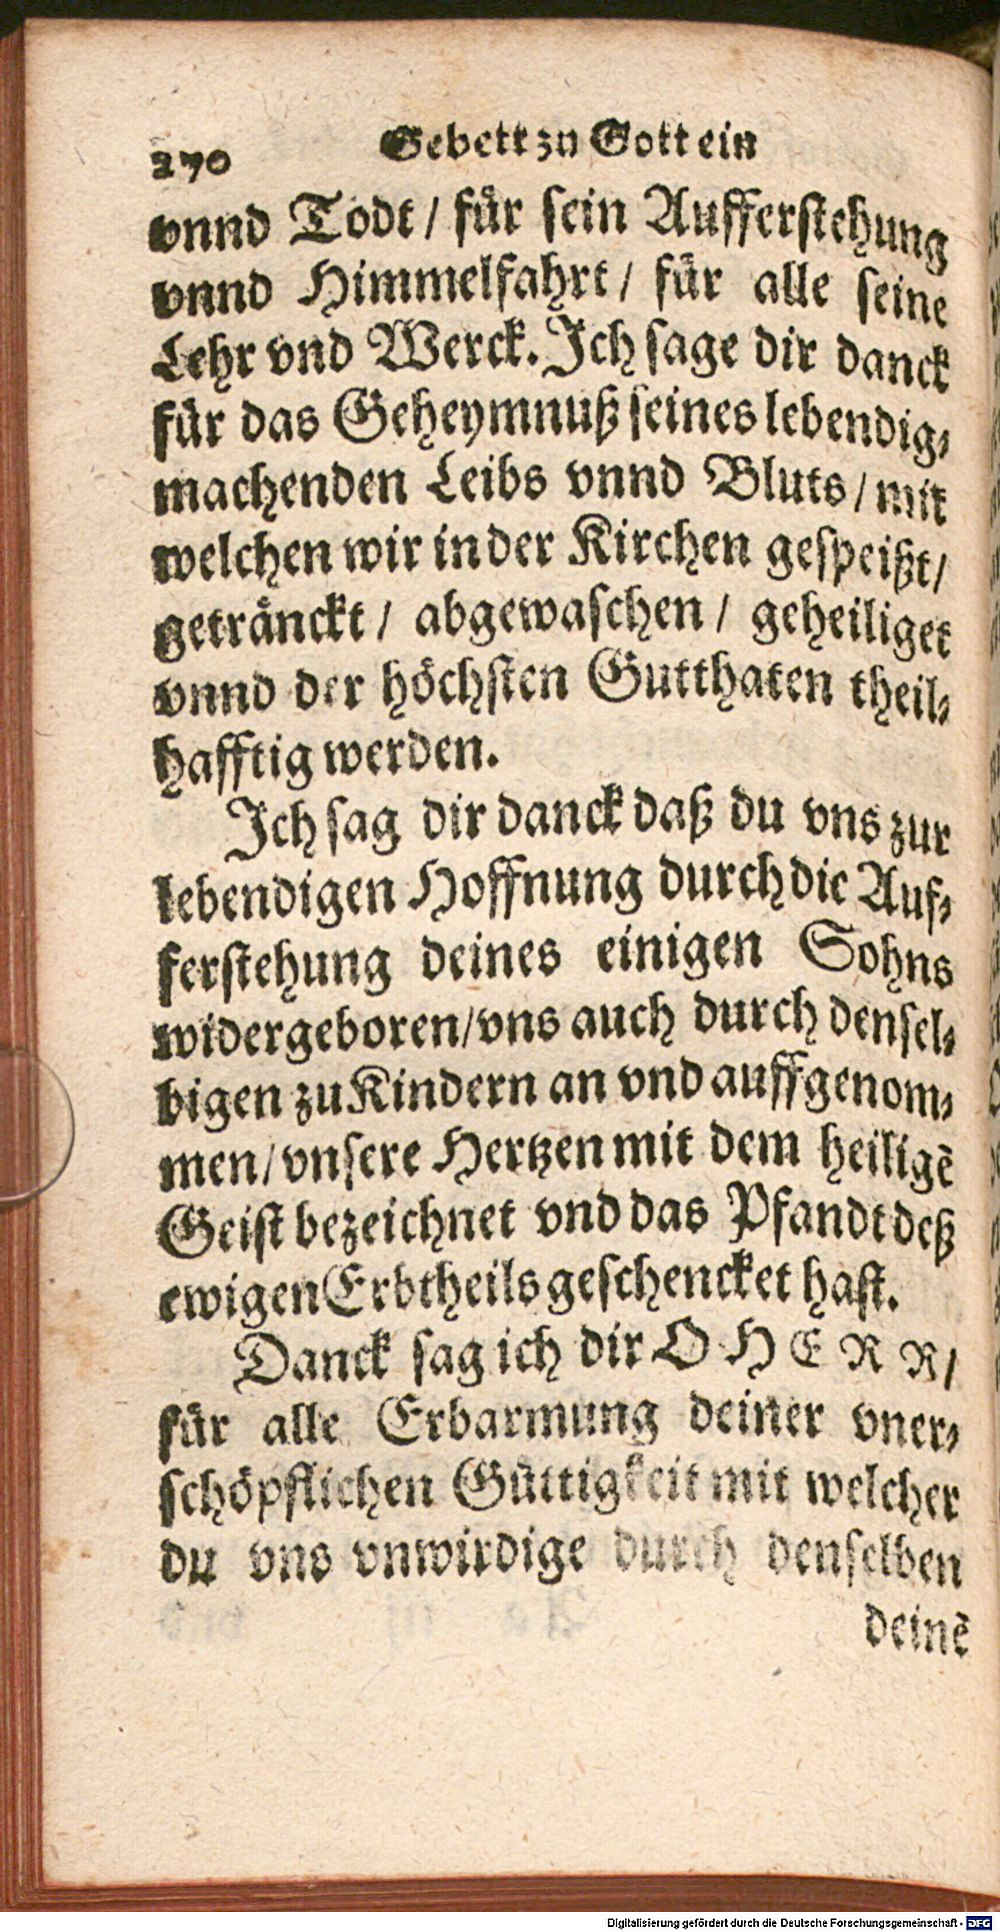 270 Gebett zu Gott ein
vnnd Todt / für sein Aufferstehung
vnnd Himmelfahrt / für alle seine
Lehr vnd Werck. Ich sage dir danck
für das Geheymnuß seines lebendig⸗
machenden Leibs vnnd Bluts / mit
welchen wir in der Kirchen gespeißt /
getränckt / abgewaschen / geheiliget
vnnd der höchsten Gutthaten theil⸗
hafftig werden.
Ich sag dir danck daß du vns zur
lebendigen Hoffnung durch die Auf⸗
ferstehung deines einigen Sohns
widergeboren / vns auch durch densel⸗
bigen zu Kindern an vnd auffgenom⸗
men / vnsere Hertzen mit dem heiligẽ
Geist bezeichnet vnd das Pfandt deß
ewigen Erbtheils geschencket hast.
Danck sag ich dir O HERR /
für alle Erbarmung deiner vner⸗
schöpflichen Güttigkeit mit welcher
du vns vnwirdige durch denselben
deinẽ
Digitalisierung gefördert durch die Deutsche Forschungsgemeinschaft - DFG